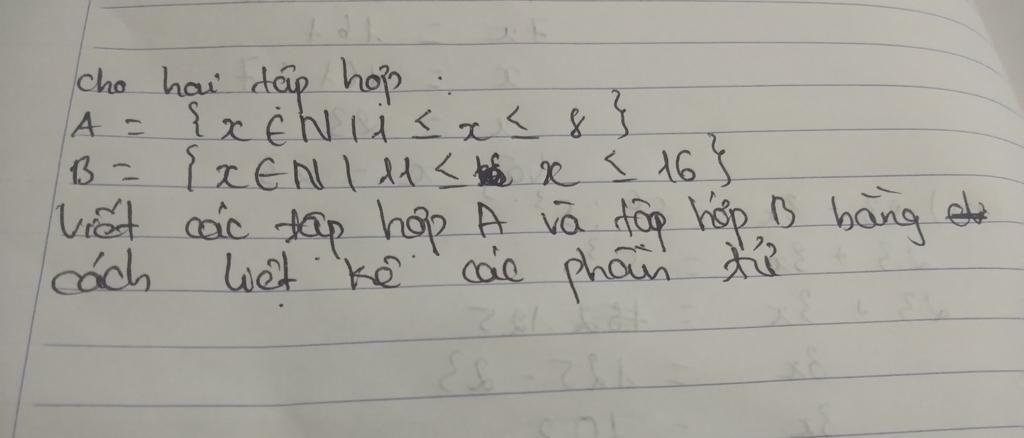 Cho hai tập hợp :
A = { x ∈ N | 1 ≤ x ≤ 8 }
B = { x ∈ N | 11 ≤ x ≤ 16 }
Viết các tập hợp A và tập hợp B bằng
cách liệt kê các phần tử